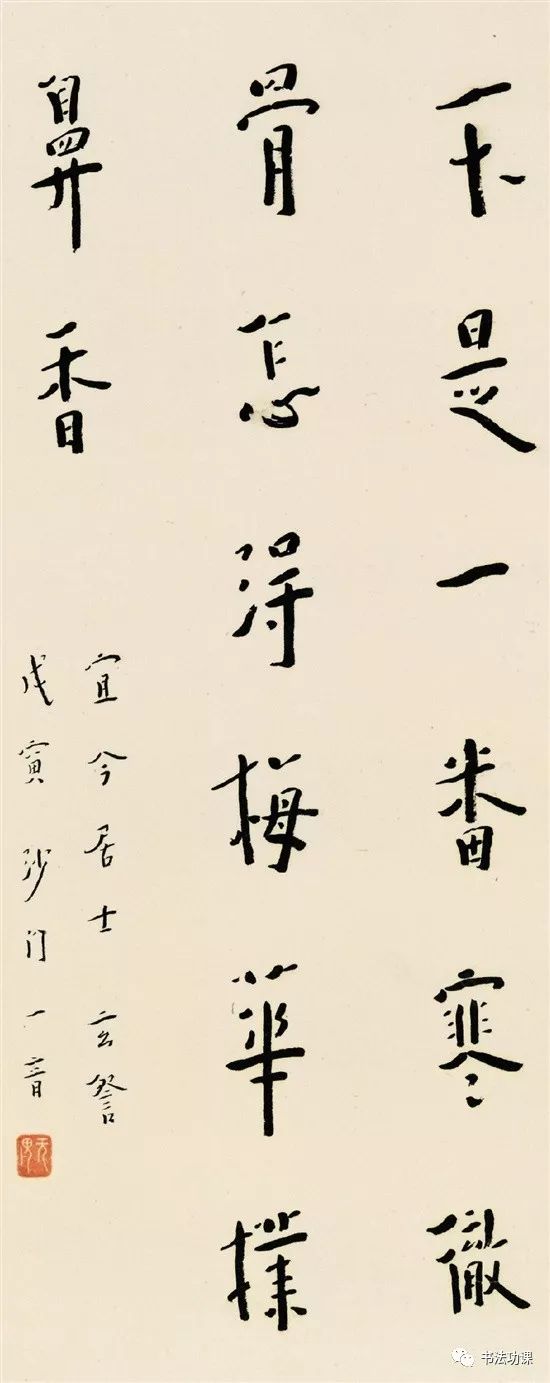 不是一番寒徹
骨怎得梅華撲
鼻香
宜今居士玄詧
戊寅沙门一音
书法功课